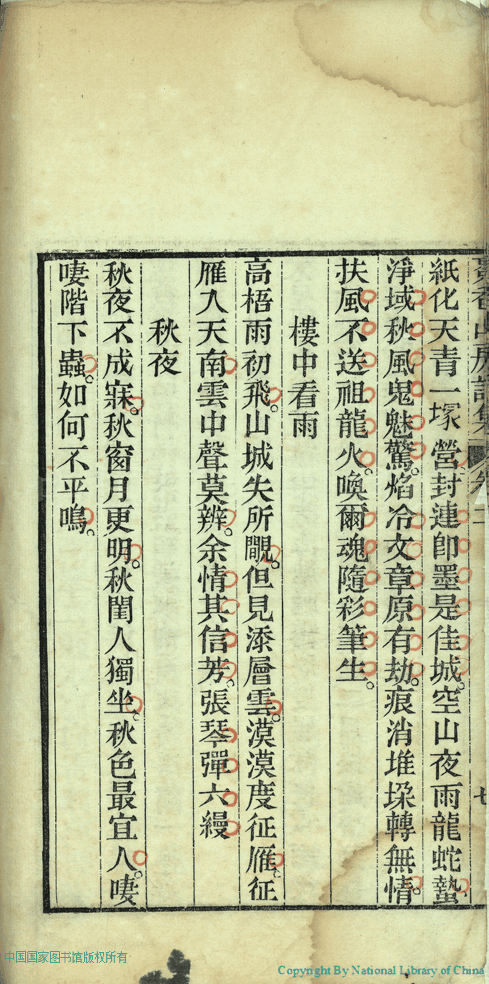 紙化天青一塚營封連卽墨是佳城空山夜雨龍蛇蟄
淨域秋風鬼魅驚焰冷文章原有劫痕消堆垜轉無情
扶風不送祖龍火喚爾魂隨彩筆生
樓中看雨
高梧雨初飛山城失所覵但見添層雲漠漠度征雁征
雁入天南雲中聲莫辨余情其信芳張琴彈六縵
秋夜
秋夜不成寐秋窗月更明秋閨人獨坐秋色最宜人凄
凄階下蟲如何不平鳴
中国国家图书馆版权所有
Copyright By National Library of China